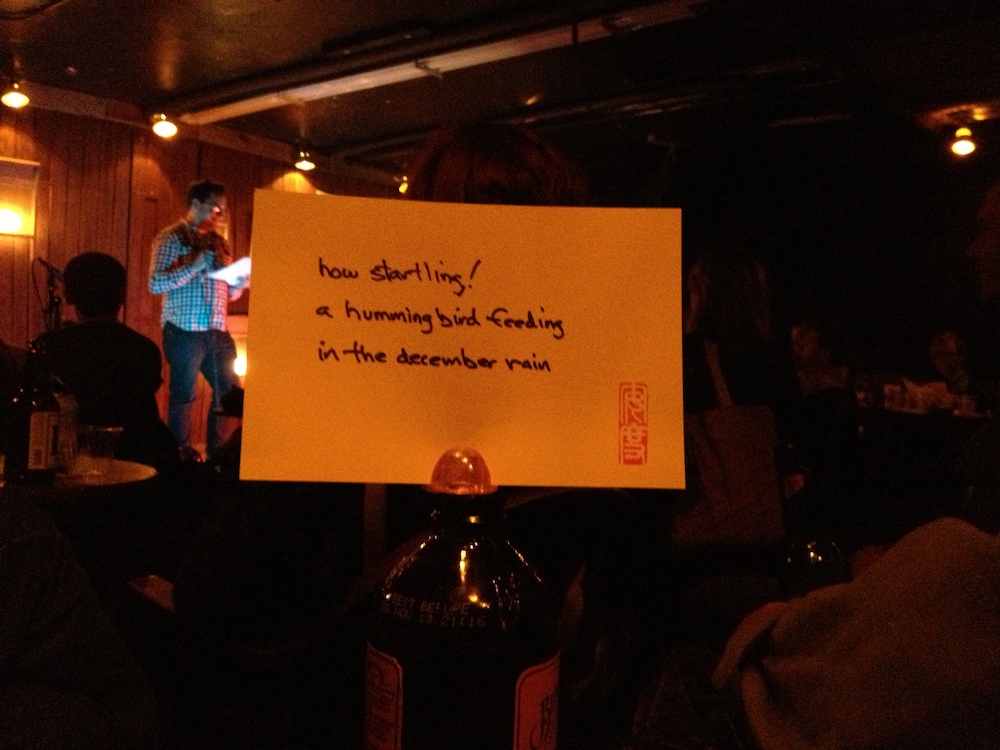 how startling!
a hummingbird feeding
in the december rain
BEST BEFORE
NOV 13 21:16